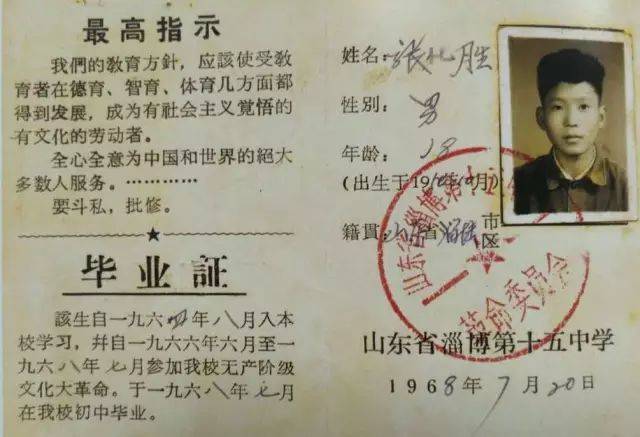 最高指示
我們的敎育方針，应該使受敎
育者在德育、智育、体育几方面都
得到发展，成为有社会主义覚悟的
有文化的劳动者。
全心全意为中国和世界的絕大
多数人服务。…………
要斗私，批修。
毕业証
該生自一九六四年八月入本
校学习，幷自一九六六年六月至一
九六八年七月参加我校无产阶级
文化大革命。于一九六八年七月
在我校初中毕业。
姓名：张 胜
性别：男
年龄：18
(出生于19 年 月)
籍貫：山东省 市
区
山东省淄博第十五中学
革命委员会
山东省淄博第十五中学
1968年7月20日